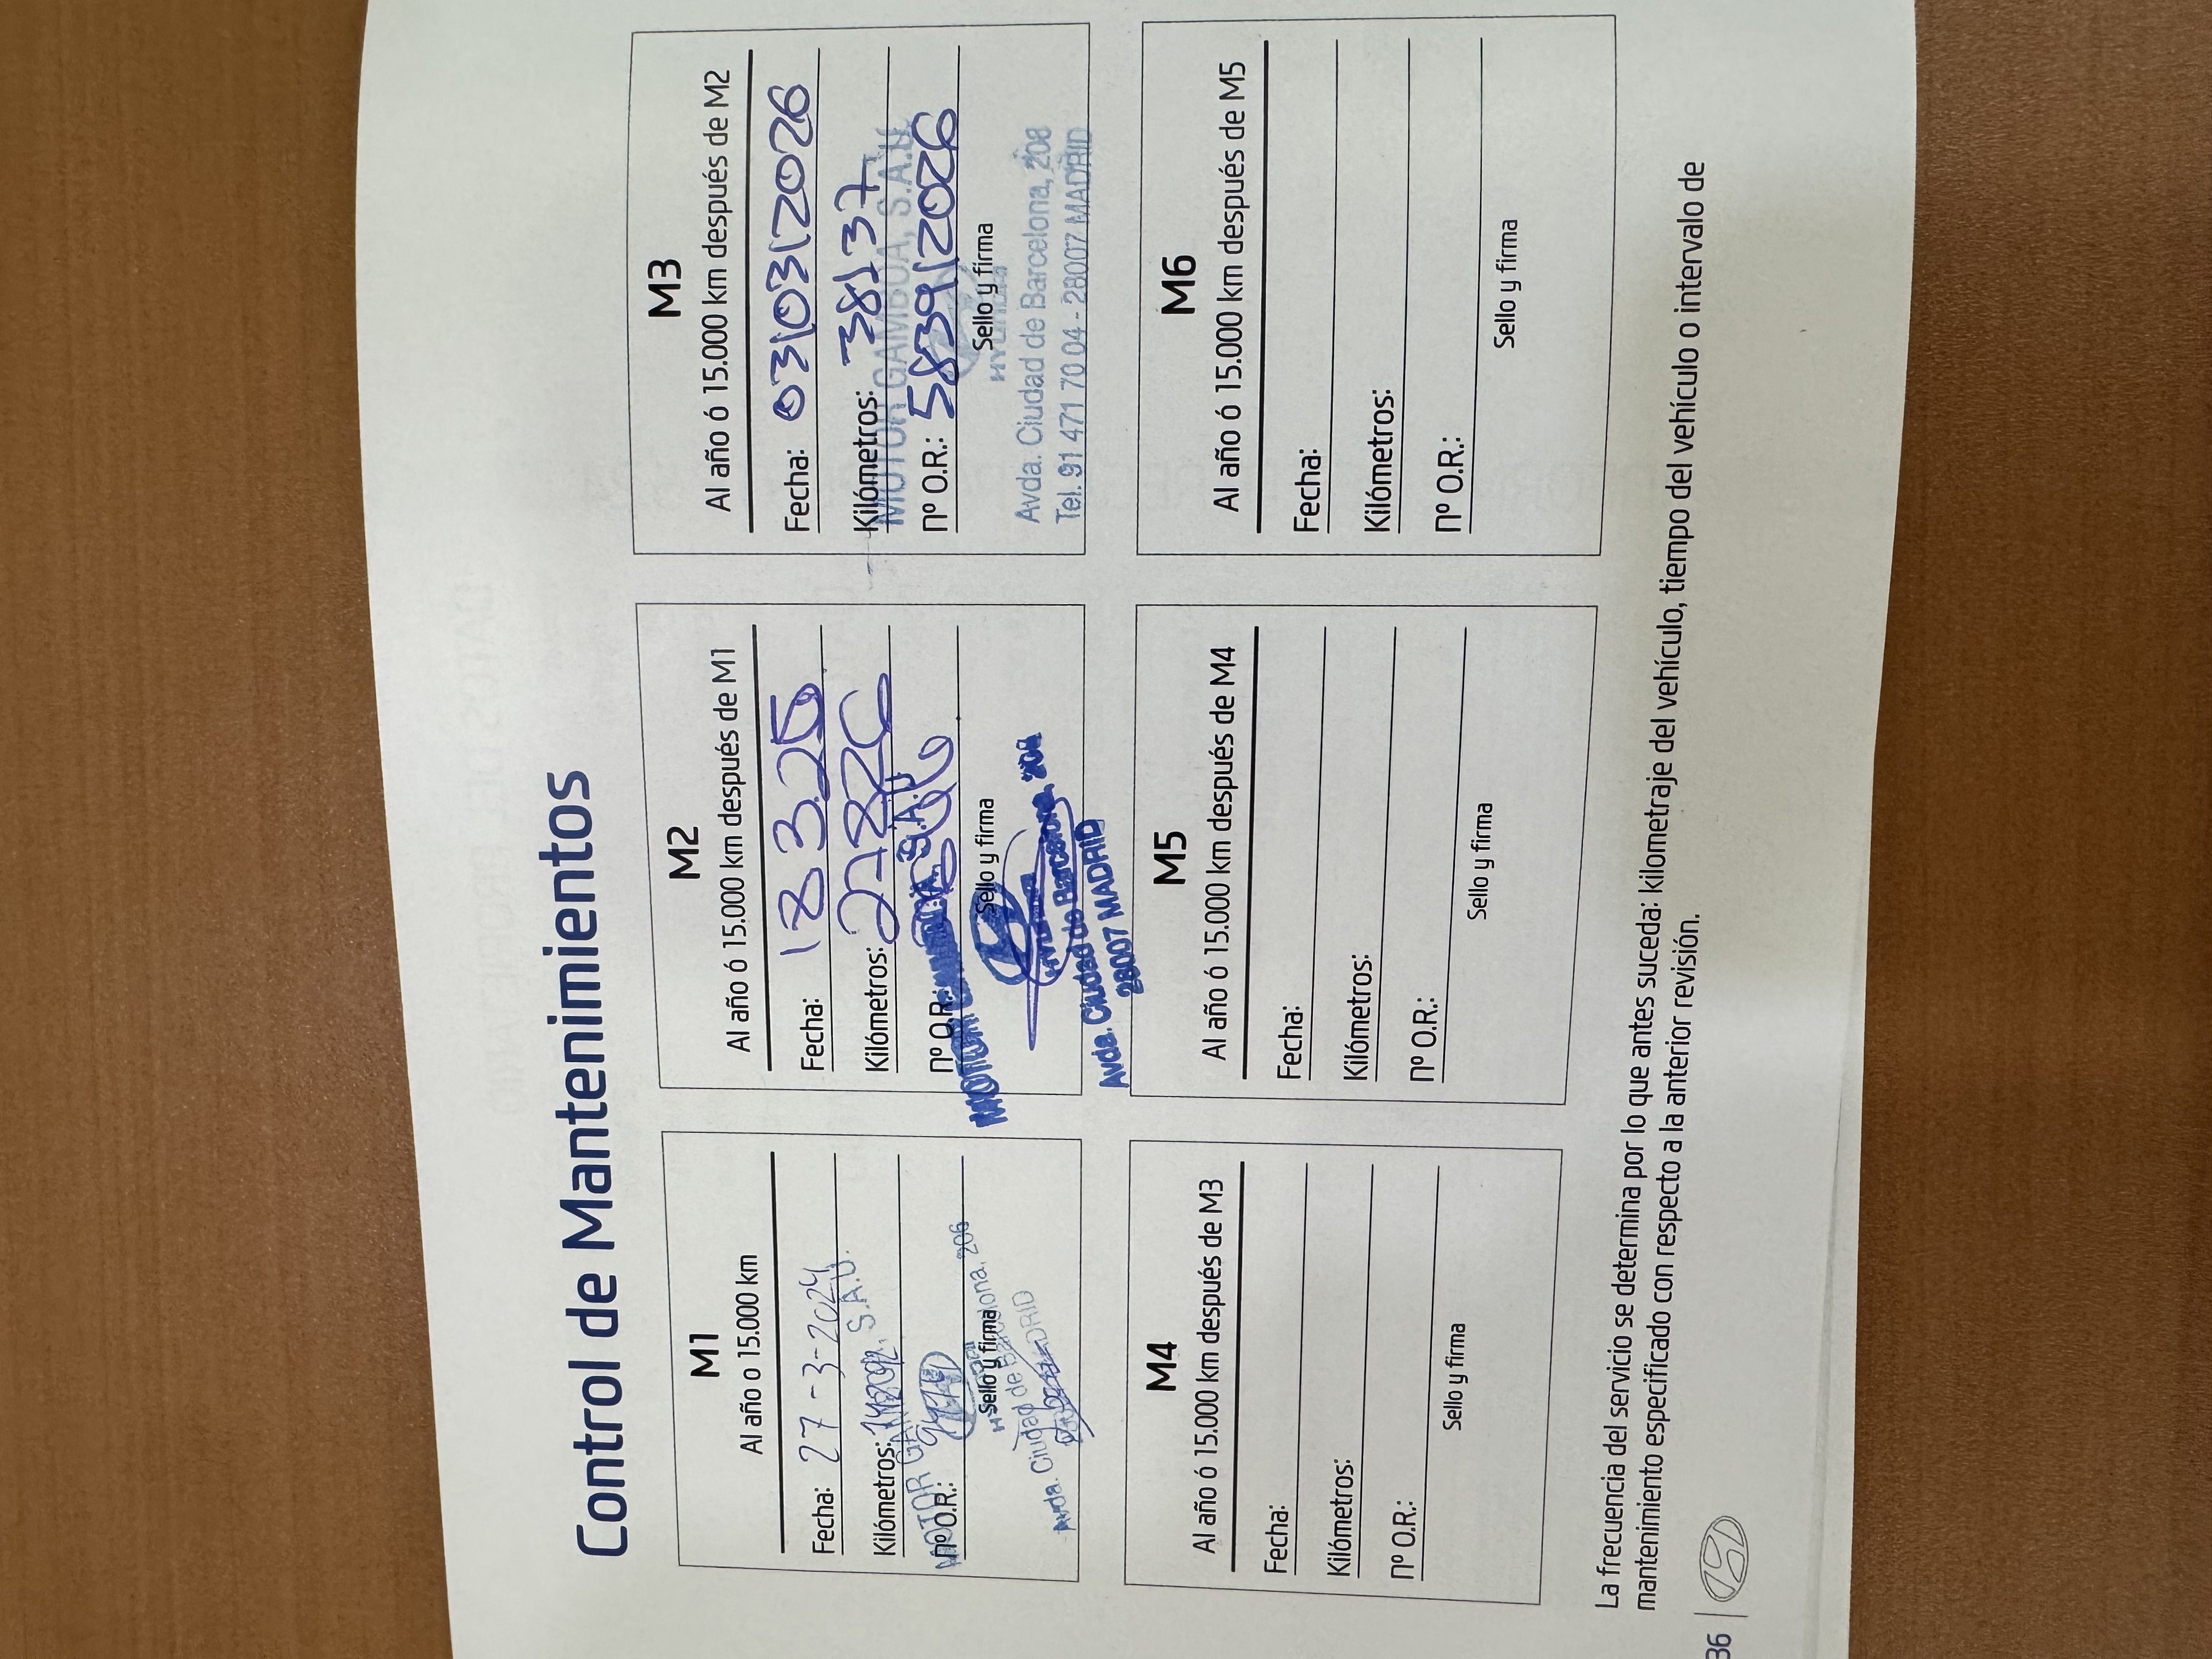 Control de Mantenimientos
M1
Al año o 15.000 km
Fecha: 27-3-2024
Kilómetros:
MOTOR S.A.U.
nº O.R.:
Sello y firma
Avda. Ciudad de Barcelona, 206
M2
Al año ó 15.000 km después de M1
Fecha: 18 3 25
Kilómetros:
nº O.R.:
MOTOR S.A.U.
Sello y firma
Avda. Ciudad de Barcelona,
28007 MADRID
M3
Al año ó 15.000 km después de M2
Fecha: 03/03/2026
Kilómetros: 38137
MOTOR GAMBOA, S.A.U.
nº O.R.: 5839/2026
Sello y firma
HYUNDAI
Avda. Ciudad de Barcelona, 208
Tel. 91 471 70 04 - 28007 MADRID
M4
Al año ó 15.000 km después de M3
Fecha:
Kilómetros:
nº O.R.:
Sello y firma
M5
Al año ó 15.000 km después de M4
Fecha:
Kilómetros:
nº O.R.:
Sello y firma
M6
Al año ó 15.000 km después de M5
Fecha:
Kilómetros:
nº O.R.:
Sello y firma
La frecuencia del servicio se determina por lo que antes suceda: kilometraje del vehículo, tiempo del vehículo o intervalo de
mantenimiento especificado con respecto a la anterior revisión.
36